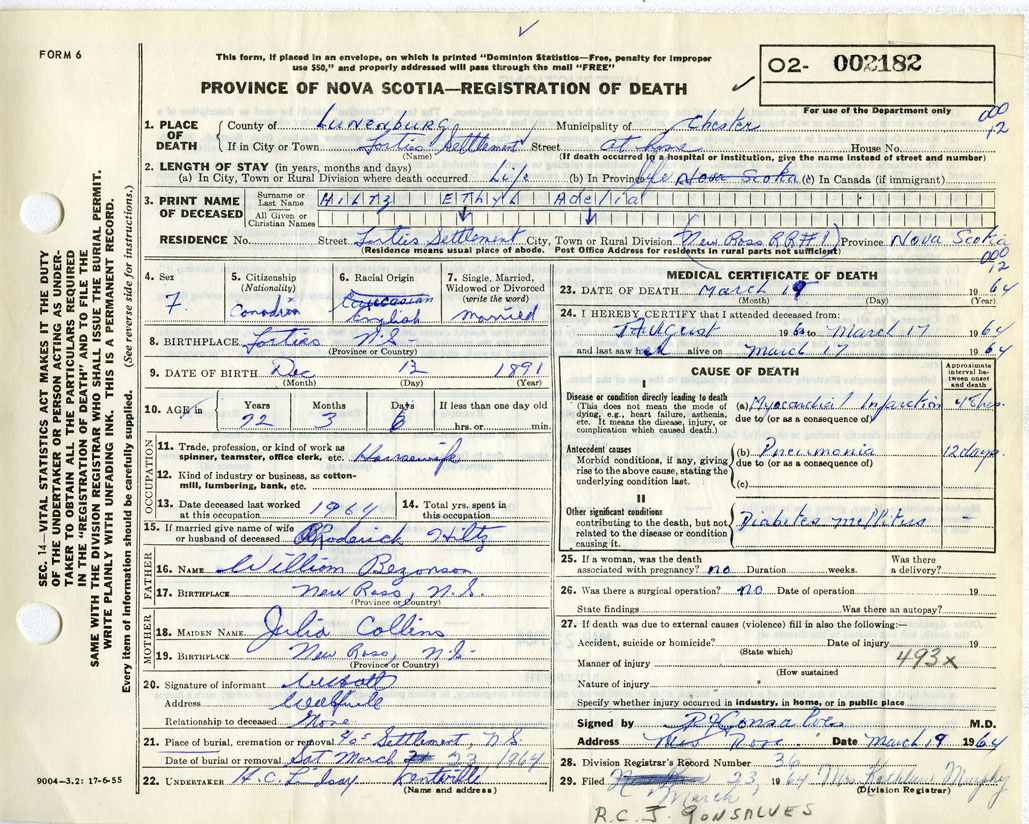 FORM 6
This form, if placed in an envelope, on which is printed "Dominion Statistics—Free, penalty for improper
use $50," and properly addressed will pass through the mail "FREE"
PROVINCE OF NOVA SCOTIA—REGISTRATION OF DEATH
O2- 002182
For use of the Department only
000
12
1. PLACE OF DEATH County of Lunenburg Municipality of Chester
If in City or Town Forties Settlement Street At home House No.
(Name) (If death occurred in a hospital or institution, give the name instead of street and number)
2. LENGTH OF STAY (in years, months and days)
(a) In City, Town or Rural Division where death occurred Life (b) In Province Life Nova Scotia (c) In Canada (if immigrant)
3. PRINT NAME OF DECEASED Surname or Last Name Hiltz Ethyl Adelia
All Given or Christian Names
RESIDENCE No. Street Forties Settlement City, Town or Rural Division (New Ross RR#1) Province Nova Scotia
(Residence means usual place of abode. Post Office Address for residents in rural parts not sufficient)
000
12
4. Sex F.
5. Citizenship (Nationality) Canadian
6. Racial Origin Caucasian English
7. Single, Married, Widowed or Divorced (write the word) Married
8. BIRTHPLACE Forties N.S.
(Province or Country)
9. DATE OF BIRTH Dec 13 1891
(Month) (Day) (Year)
10. AGE in Years Months Days If less than one day old
72 3 6 hrs. or min.
OCCUPATION
11. Trade, profession or kind of work as spinner, teamster, office clerk, etc. Housewife
12. Kind of industry or business, as cotton-mill, lumbering, bank, etc.
13. Date deceased last worked at this occupation 1964 14. Total yrs. spent in this occupation
15. If married give name of wife or husband of deceased Roderick Hiltz
FATHER
16. NAME William Bezonson
17. BIRTHPLACE New Ross, N.S.
(Province or Country)
MOTHER
18. MAIDEN NAME Julia Collins
19. BIRTHPLACE New Ross, N.S.
(Province or Country)
20. Signature of informant
Address
Relationship to deceased None
21. Place of burial, cremation or removal Settlement, N.S.
Date of burial or removal Sat March 23 1964
22. UNDERTAKER H.C. Lindsay Kentville
(Name and address)
9004—3.2: 17-6-55
MEDICAL CERTIFICATE OF DEATH
23. DATE OF DEATH March 19 1964
(Month) (Day)
24. I HEREBY CERTIFY that I attended deceased from:
August 196 to March 17 1964
and last saw her alive on March 17 1964
CAUSE OF DEATH
Approximate interval between onset and death
I
Disease or condition directly leading to death
(This does not mean the mode of dying, e.g., heart failure, asthenia, etc. It means the disease, injury, or complication which caused death.)
(a) Myocardial Infarction 48 hrs.
due to (or as a consequence of)
Antecedent causes
Morbid conditions, if any, giving rise to the above cause, stating the underlying condition last.
(b) Pneumonia 12 days.
due to (or as a consequence of)
(c)
II
Other significant conditions
contributing to the death, but not related to the disease or condition causing it.
Diabetes mellitus —
25. If a woman, was the death associated with pregnancy? no Duration weeks. Was there a delivery?
26. Was there a surgical operation? no Date of operation 19
State findings Was there an autopsy?
27. If death was due to external causes (violence) fill in also the following:—
Accident, suicide or homicide? Date of injury 19
(State which)
493x
Manner of injury
(How sustained
Nature of injury
Specify whether injury occurred in industry, in home, or in public place
Signed by M.D.
Address New Ross. Date March 19 1964
28. Division Registrar's Record Number 36
29. Filed March 23, 1964 Mrs. Kathleen Murphy
(Division Registrar)
R.C.J. GONSALVES
SEC. 14—VITAL STATISTICS ACT MAKES IT THE DUTY
OF THE UNDERTAKER OR PERSON ACTING AS UNDER-
TAKER TO OBTAIN ALL THE PARTICULARS REQUIRED
IN THE "REGISTRATION OF DEATH" AND TO FILE THE
SAME WITH THE DIVISION REGISTRAR WHO SHALL ISSUE THE BURIAL PERMIT.
WRITE PLAINLY WITH UNFADING INK. THIS IS A PERMANENT RECORD.
Every item of information should be carefully supplied. (See reverse side for instructions.)